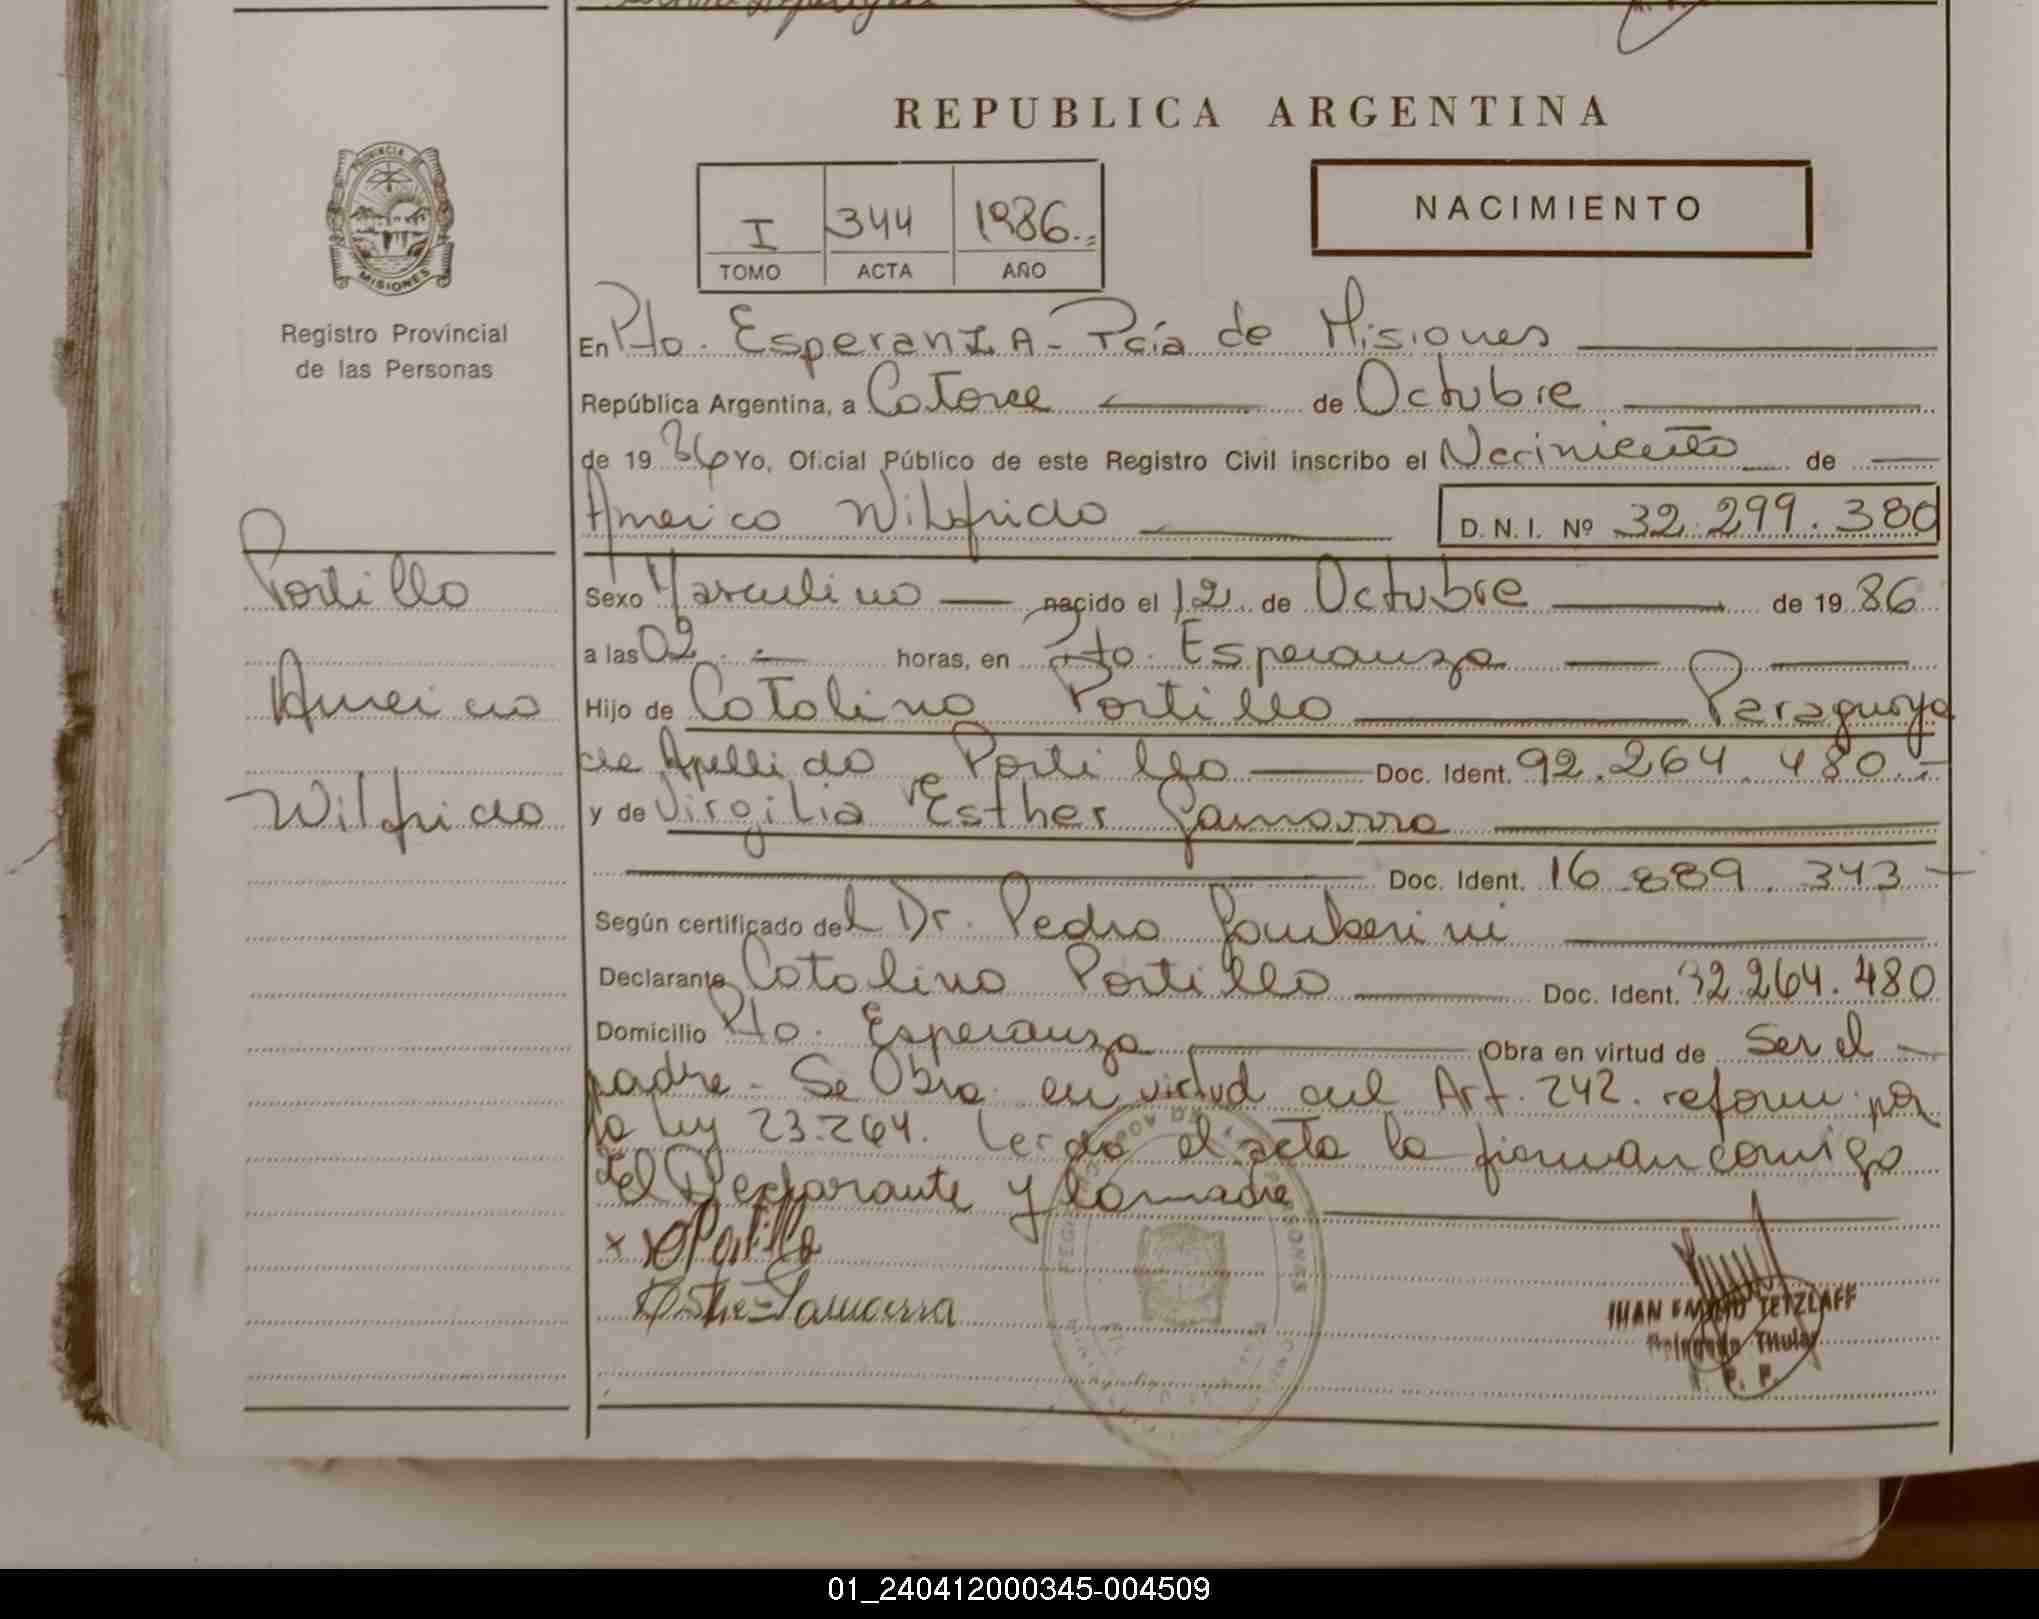 REPUBLICA ARGENTINA
PROVINCIA DE
MISIONES
Registro Provincial
de las Personas
I 344 1986.=
TOMO ACTA AÑO
NACIMIENTO
En Pto. Esperanza - Pcía de Misiones
República Argentina, a Catorce de Octubre
de 19 86 Yo, Oficial Público de este Registro Civil inscribo el Nacimiento de
Americo Wilfrido D.N.I. Nº 32.299.380
Portillo
Americo
Wilfrido
Sexo Masculino nacido el 12 de Octubre de 19 86
a las 02 horas, en Pto. Esperanza
Hijo de Catalino Portillo Paraguayo
de Apellido Portillo Doc. Ident. 92.264.480.-
y de Virgilia Esther Gamarra
Doc. Ident. 16.889.343
Según certificado del Dr. Pedro
Declarante Catalino Portillo Doc. Ident. 92.264.480
Domicilio Pto. Esperanza Obra en virtud de ser el
padre - Se Obra en virtud del Art. 242. reform por
la ley 23.264. Leida el acta la firman comigo
el Declarante y la madre
Portillo
Gamarra
JUAN TETZLAFF
Delegado Titular
R. P. P.
01_240412000345-004509